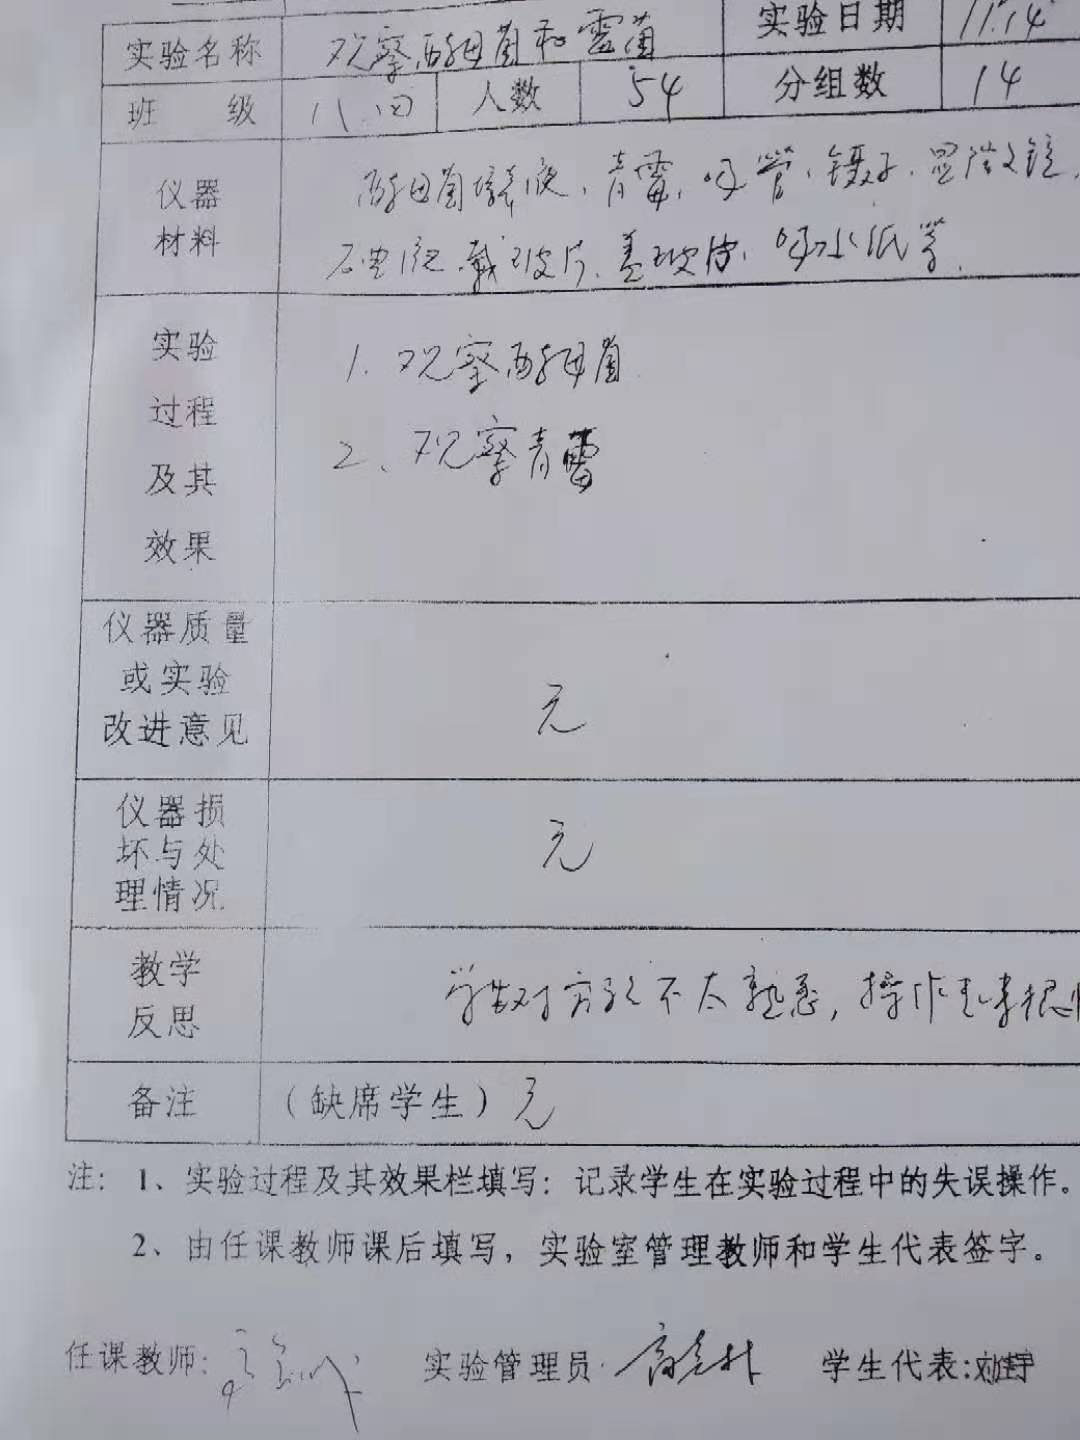 实验名称 观察酵母菌和霉菌 实验日期 11.14
班 级 八.四 人数 54 分组数 14
仪器 酵母菌培养液、青霉、吸管、镊子、显微镜、
材料 碘液、载玻片、盖玻片、吸水纸等.
实验 1.观察酵母菌
过程
及其 2、观察青霉
效果
仪器质量
或实验
改进意见 无
仪器损
坏与处 无
理情况
教学 学生对方法不太熟悉，操作起来很
反思
备注 （缺席学生）无
注：1、实验过程及其效果栏填写：记录学生在实验过程中的失误操作。
2、由任课教师课后填写，实验室管理教师和学生代表签字。
任课教师： 实验管理员： 学生代表：刘宇